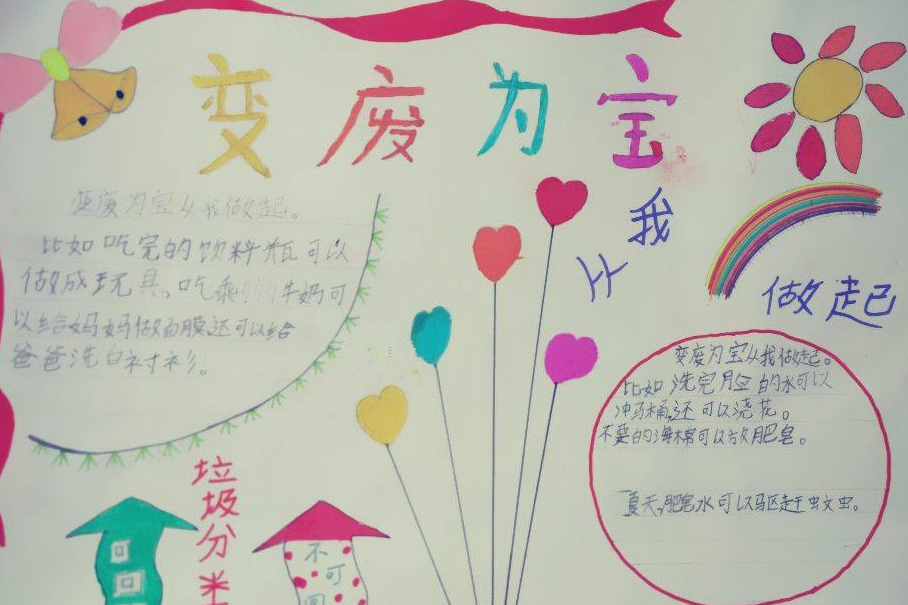 变废为宝
从我
做起
变废为宝从我做起。
比如吃完的饮料瓶可以
做成玩具。吃剩的牛奶可
以给妈妈做面膜还可以给
爸爸洗白衬衫。
变废为宝从我做起。
比如洗完脸的水可以
冲马桶,还可以浇花。
不要的海棉可以放肥皂。
夏天,肥皂水可以驱赶蚊虫。
垃圾分类
可回
不可回